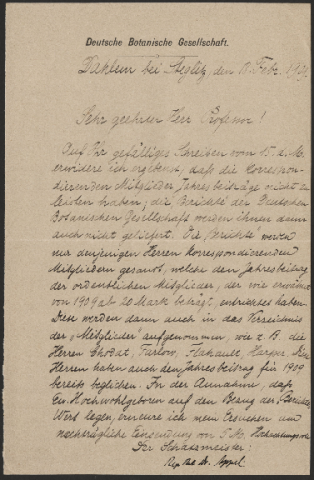 Deutsche Botanische Gesellschaft.
Dahlem bei Steglitz, den Febr. 19
Sehr geehrter Herr Professor!
Auf Ihr gefälliges Schreiben vom 15. d. M.
erwidere ich ergebenst, daß die korrespon-
dierenden Mitglieder Jahresbeiträge nicht zu
leisten haben; die Berichte der Deutschen
Botanischen Gesellschaft werden ihnen dann
auch nicht geliefert. Die "Berichte" werden
nur denjenigen Herren korrespondierenden
Mitgliedern gesandt, welche den Jahresbeitrag
der ordentlichen Mitglieder, der wie erwähnt
von 1909 ab 20 Mark beträgt, entrichtet haben.
Diese werden dann auch in das Verzeichnis
der "Mitglieder" aufgenommen, wie z. B. die
Herren Chodat, Farlow, Flahault,
Herren haben auch den Jahresbeitrag für 1909
bereits beglichen. In der Annahme, daß
Ew. Hochwohlgeboren auf den Bezug der Berichte
Wert legen, erneure ich mein Ersuchen um
nachträgliche Einsendung von M. Hochachtungsvoll
Der Schatzmeister:
Dr. Appel